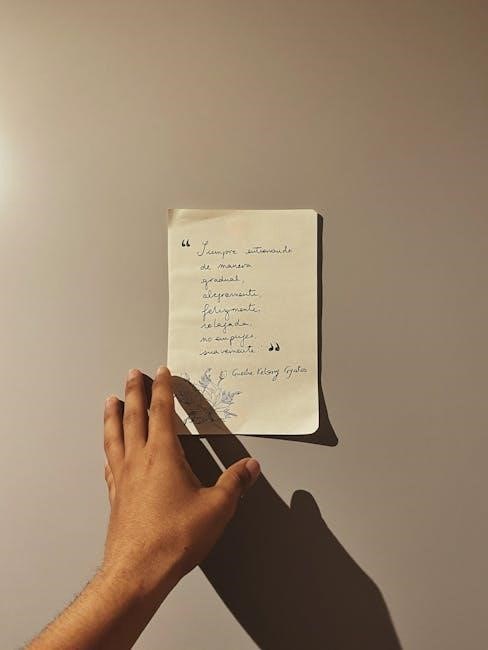 “ Siempre entrenando
de manera
gradual,
alegremente,
felizmente,
relajada,
no empujes,
suavemente. ”
Gueshe Kelsang Gyatso